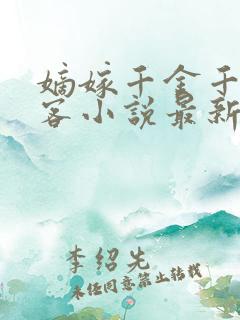 嫡嫁千金千
客小说最新
李绍先
未经同意禁止转载